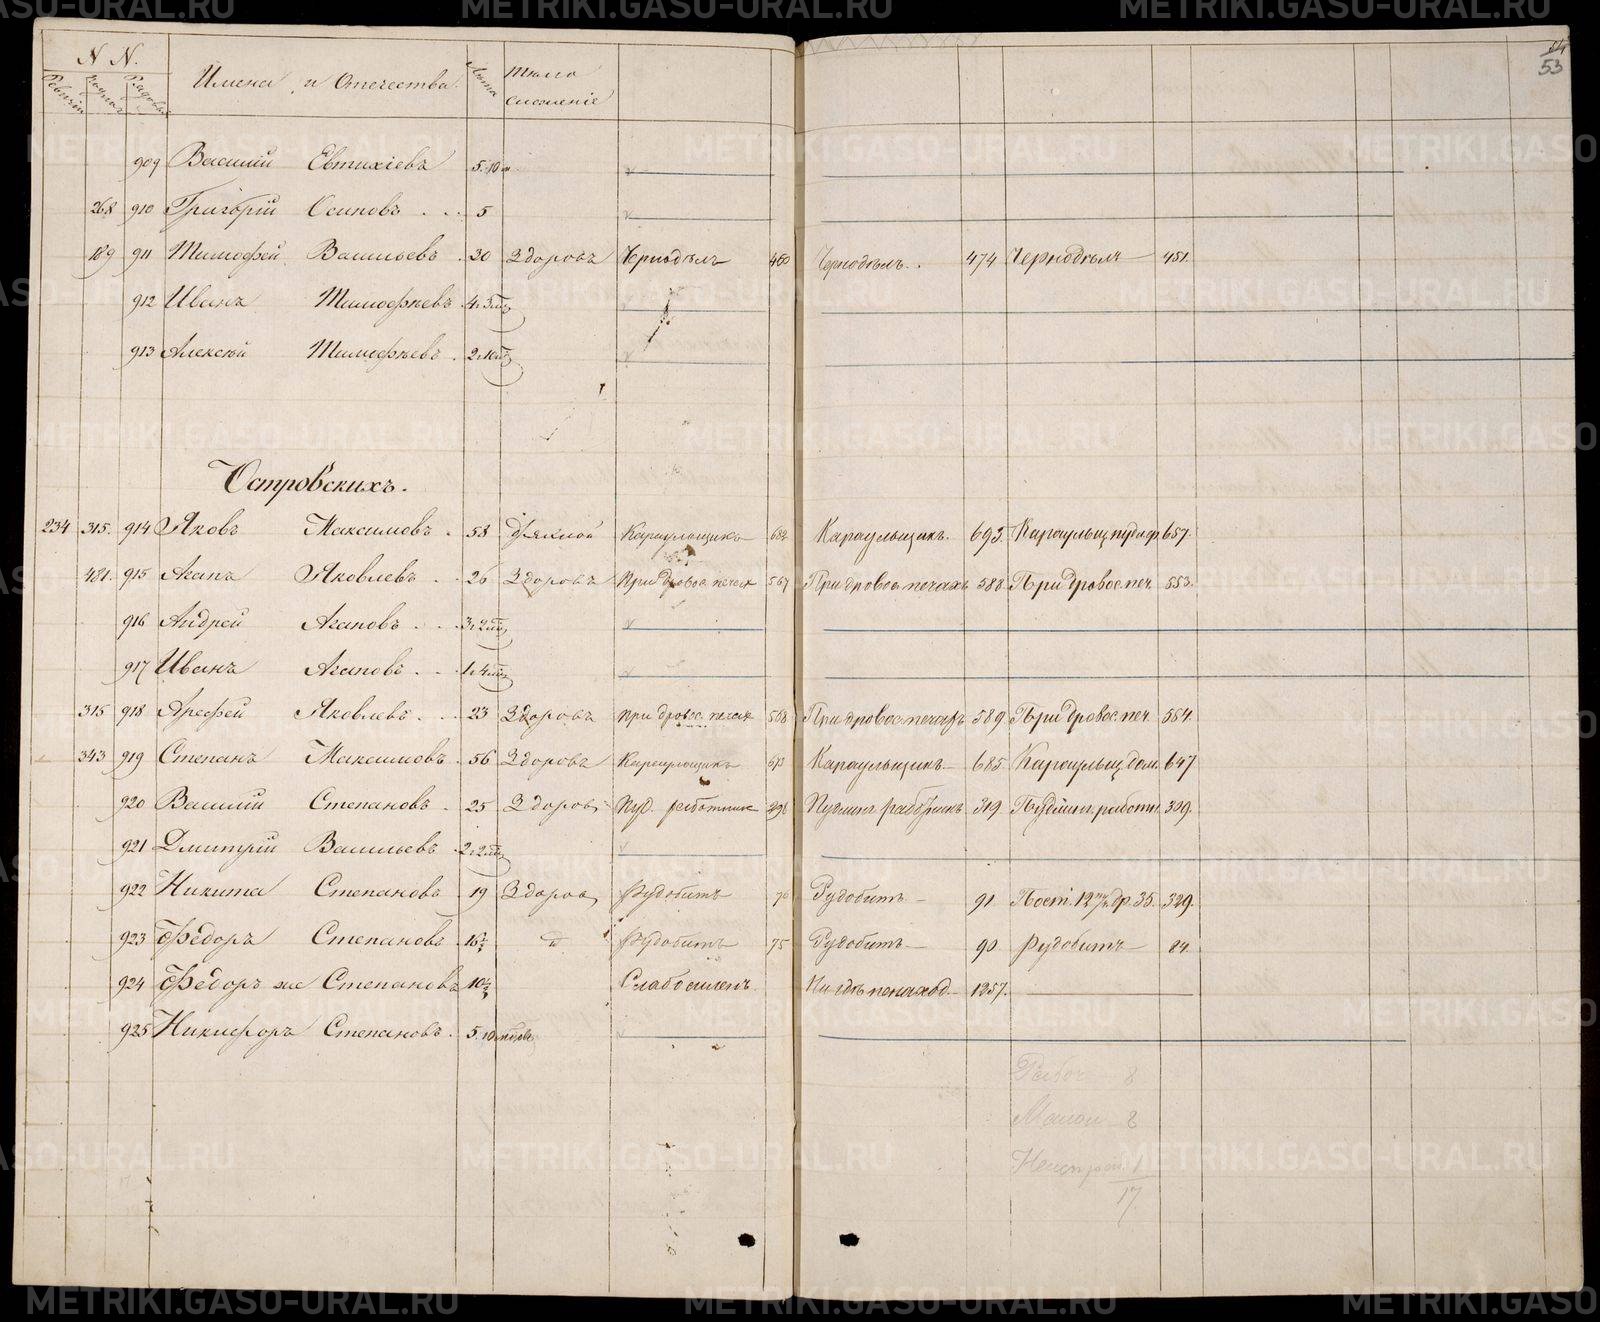 N N.
Ревизіи
Рядовые
Имена и Отечества
Лѣта
Тѣло
сложеніе
53
909 Василій Евтихіевъ 5. 10 м.
268 910 Григорій Осиповъ . . . 5
189 911 Тимофей Васильевъ . 30 Здоровъ Чернодѣлъ 460 Чернодѣлъ . . 474 Чернодѣлъ 451.
912 Иванъ Тимофѣевъ . 4. 3 м.
913 Алексѣй Тимофѣевъ . 2. 10 м.
Островскихъ.
234 315. 914 Яковъ Максимовъ . 58 Караульщикъ 682 Караульщикъ. 693. Караульщ. 657.
481. 915 Агапъ Яковлевъ . . 26 Здоровъ При дровос. печах 567 При дровос. печахъ 588. При дровос. печ. 553.
916 Андрей Агаповъ . . . 3. 2 м.
917 Иванъ Агаповъ . . . 1. 4 м.
315 918 Арефей Яковлевъ . . . 23 Здоровъ При дровос. печах 568 При дровос. печахъ 589. При дровос. печ. 554.
343 919 Степанъ Максимовъ . 56 Здоровъ Караульщикъ 673 Караульщикъ 685. Караульщ. дом. 647
920 Василій Степановъ . 25 Здоровъ Пуд. работник 298 Пудлинг. работникъ 319. Пудлинг. работн. 309.
921 Дмитрій Васильевъ . 2. 2 м.
922 Никита Степановъ . 19 Здоров Рудобитъ 76 Рудобитъ 91 329.
923 Федоръ Степановъ 16½ Рудобитъ 75 Рудобитъ 90 Рудобитъ 84.
924 Федоръ же Степановъ 10½ Слабосиленъ Ни гдѣ не наход. 1257.
925 Никифоръ Степановъ . 5. 10 м.
Рабоч 8
Малол 8
1
17.
METRIKI.GASO-URAL.RU